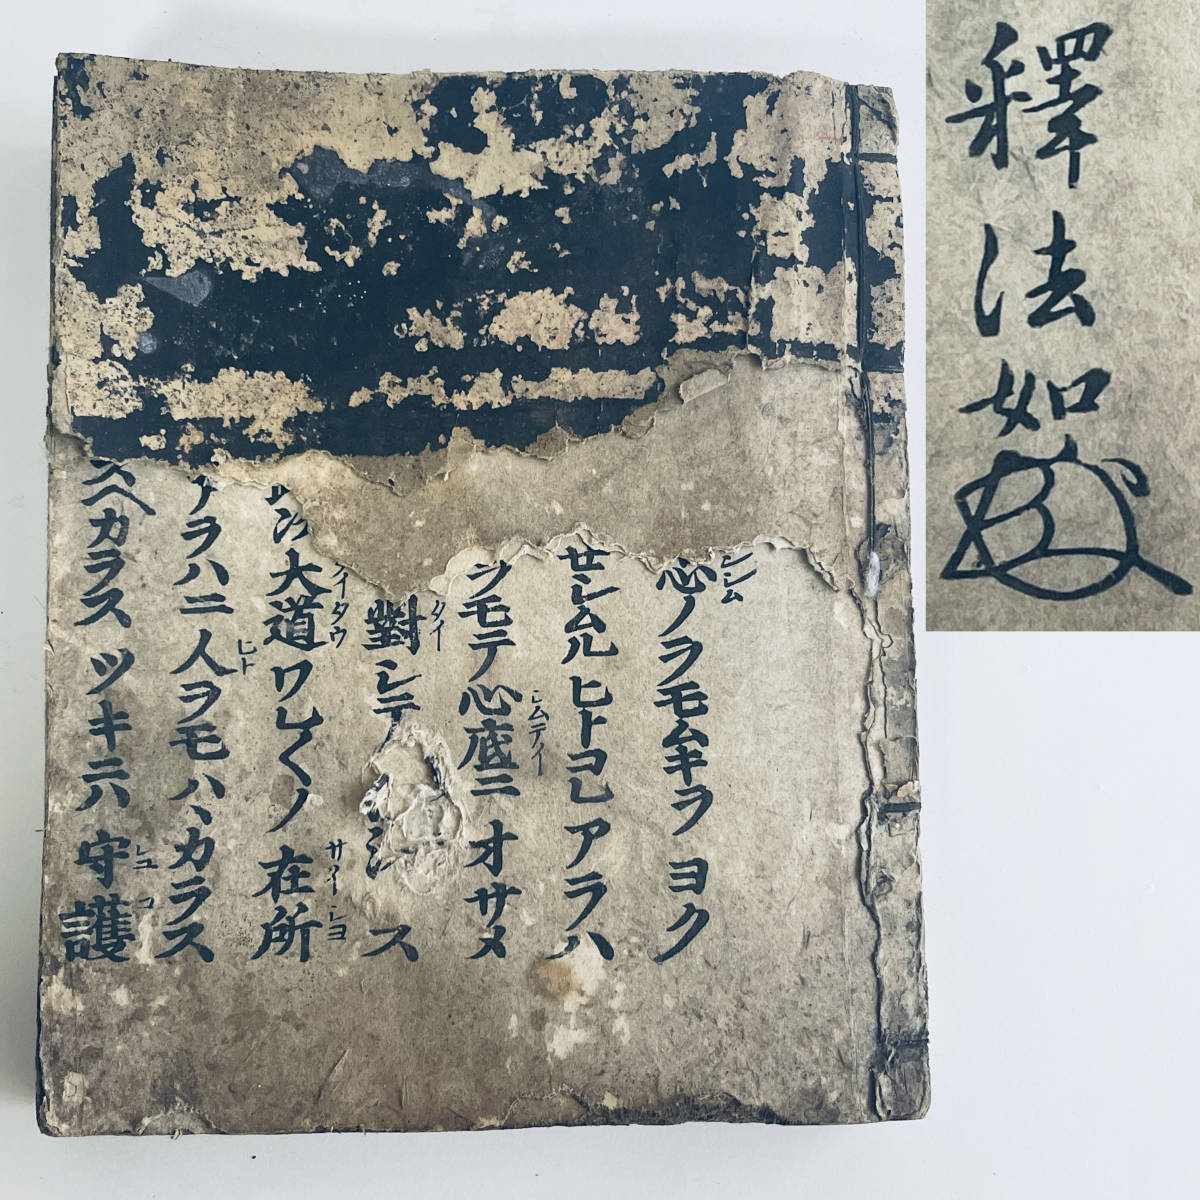 心ノヲモムキヲ ヨク
シム
セシムルヒトコレ アラハ
ツモテ心底ニ オサメ
シムテイ
對シテ
タイ
ス
大道ワレクノ 在所
イタウ
サイシヨ
ヲハニ人ヲモハヽカラス
ヒト
スヘカラス ツキニハ 守護
シユコ
釋法如